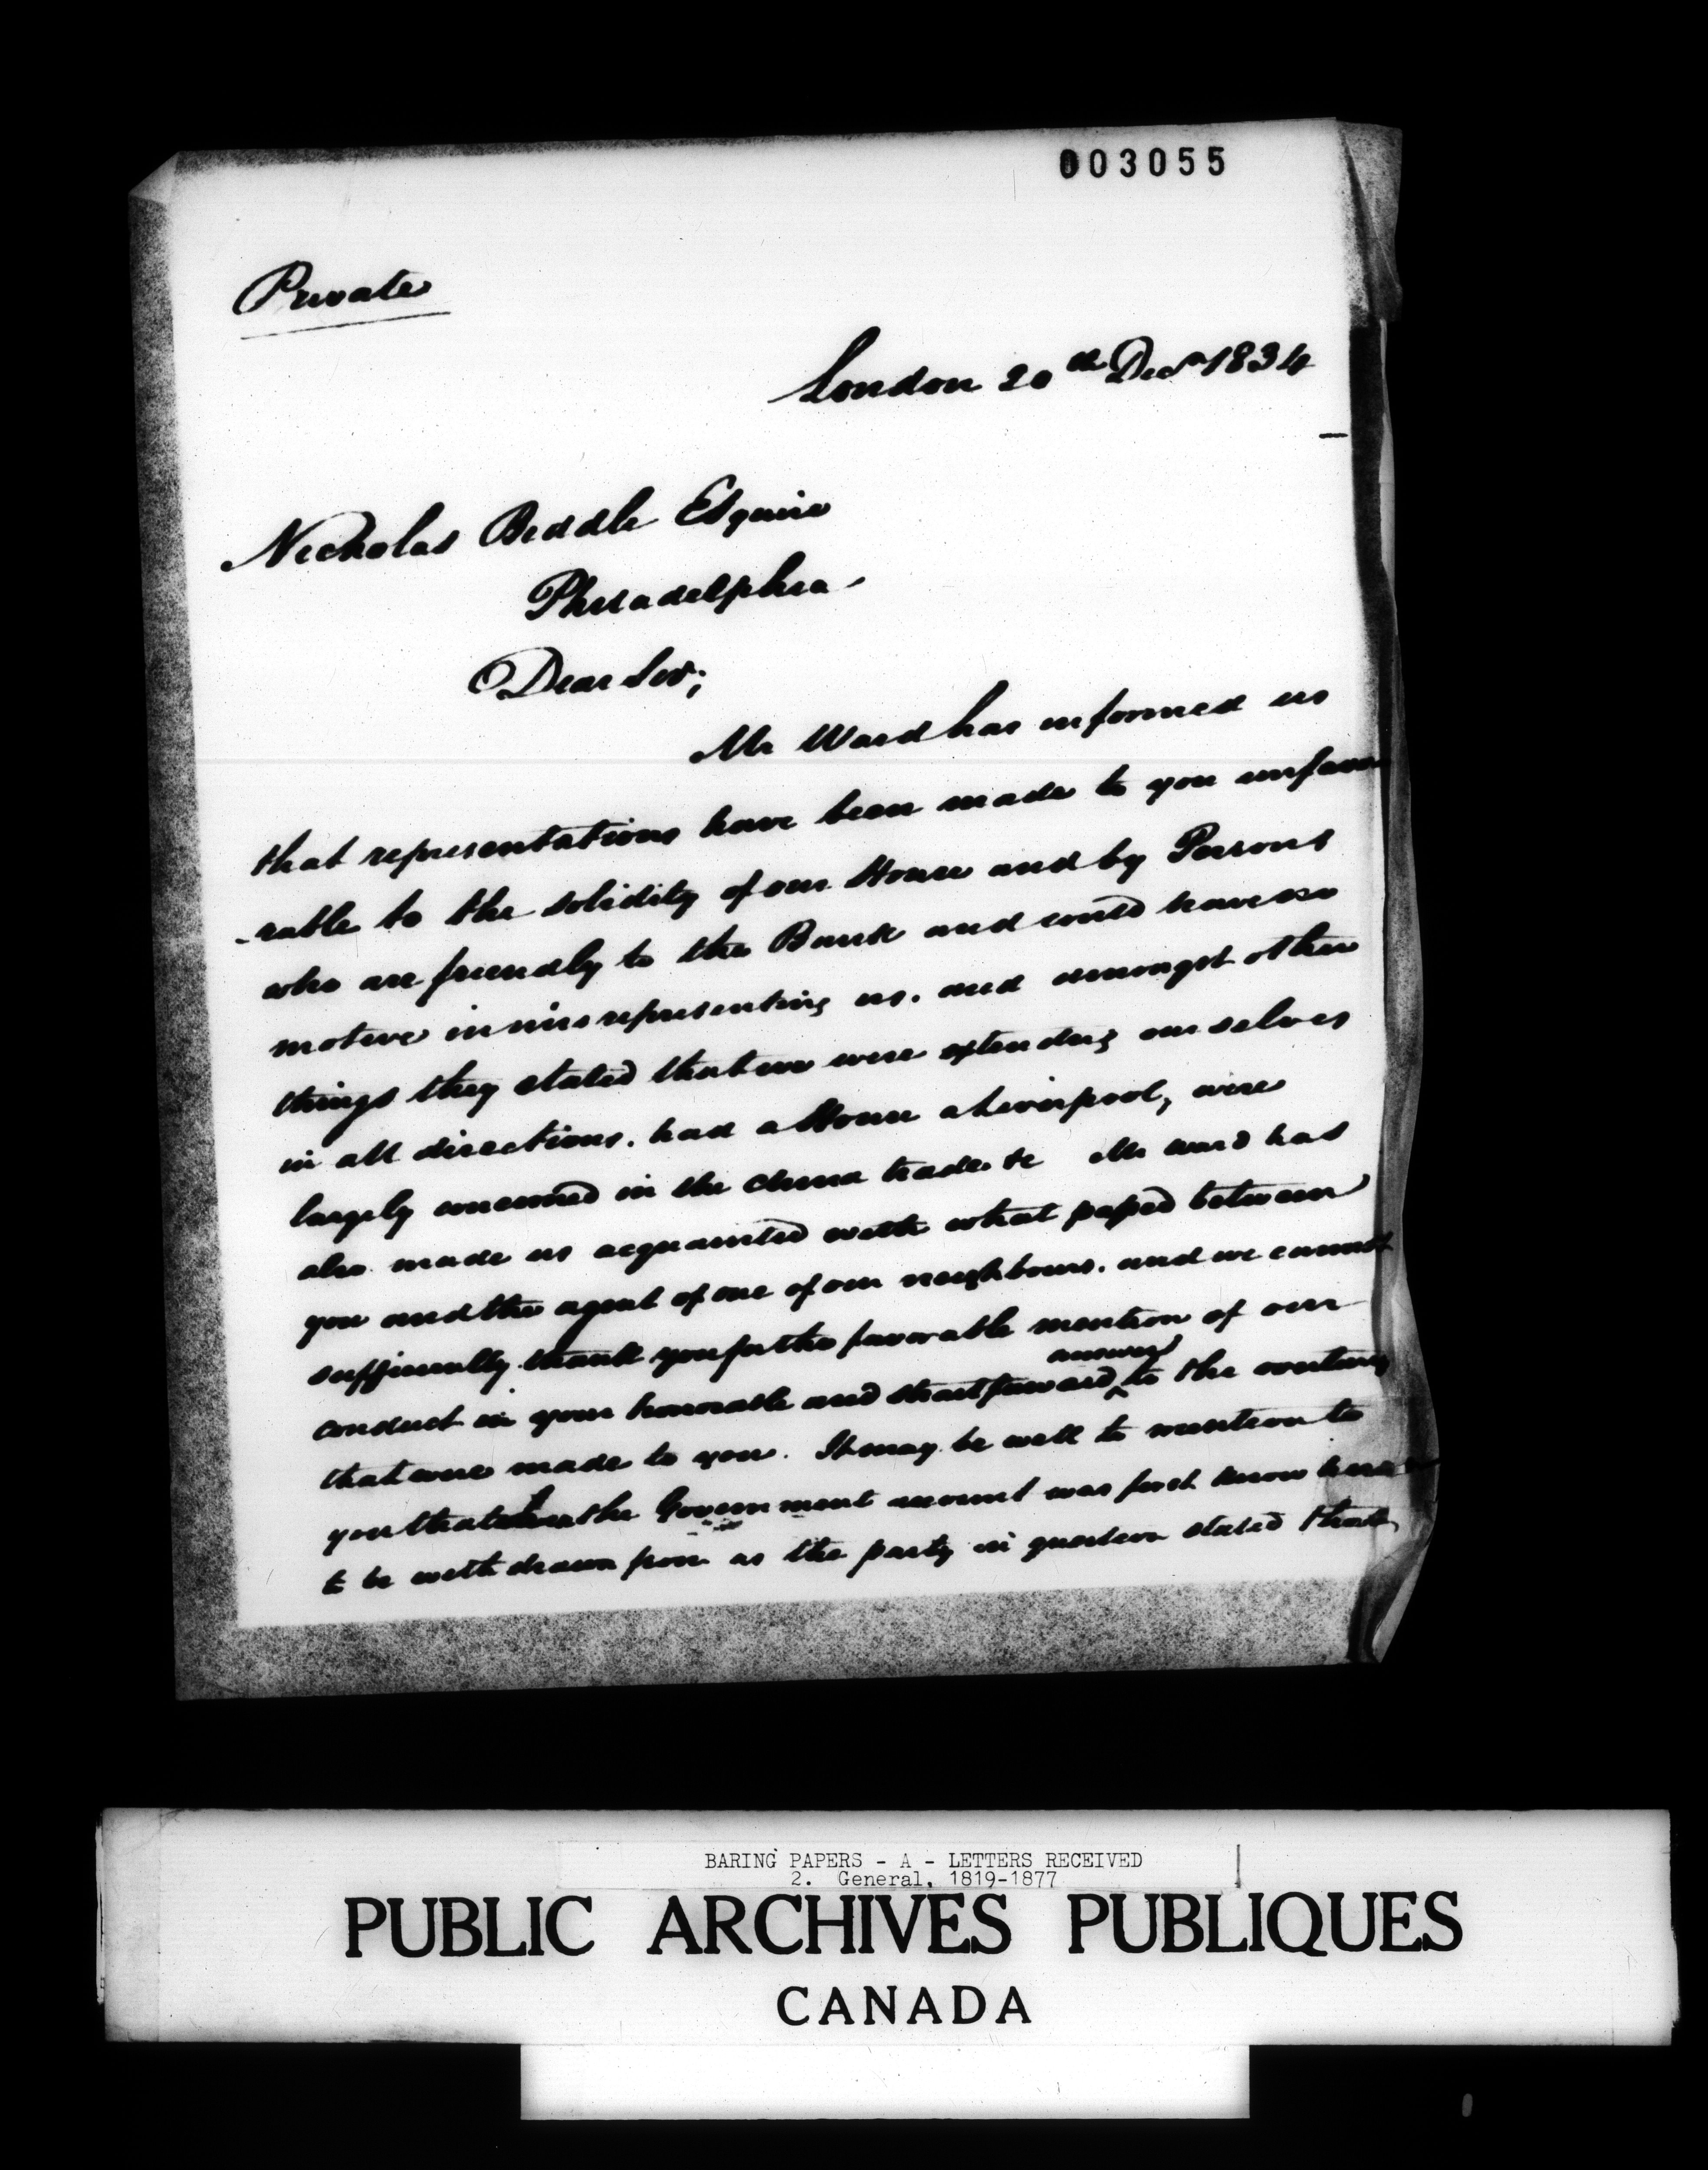 003055
Private
London 20th Decr 1834
Nicholas Biddle Esquire
Philadelphia
Dear Sir;
Mr Ward has informed us
that representations have been made to you unfavo
-rable to the solidity of our House and by Persons
who are friendly to the Bank and could have no
motive in misrepresenting us. and amongst other
things they stated that we were extending ourselves
in all directions. had a House a Liverpool, were
largely concerned in the China trade &c Mr Ward has
also made us acquainted with what passed between
you and the agent of one of our neighbours. and we cannot
sufficiently thank you for the favorable mention of our
answer
conduct in your honorable and straitforward to the
that were made to you. It may be well to mention to
you that when the Government account was first know here
to be withdrawn from as the party in question stated that
BARING PAPERS - A - LETTERS RECEIVED
2. General, 1819-1877
PUBLIC ARCHIVES PUBLIQUES
CANADA